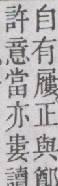 自有正與鄭
許意當亦婁讀